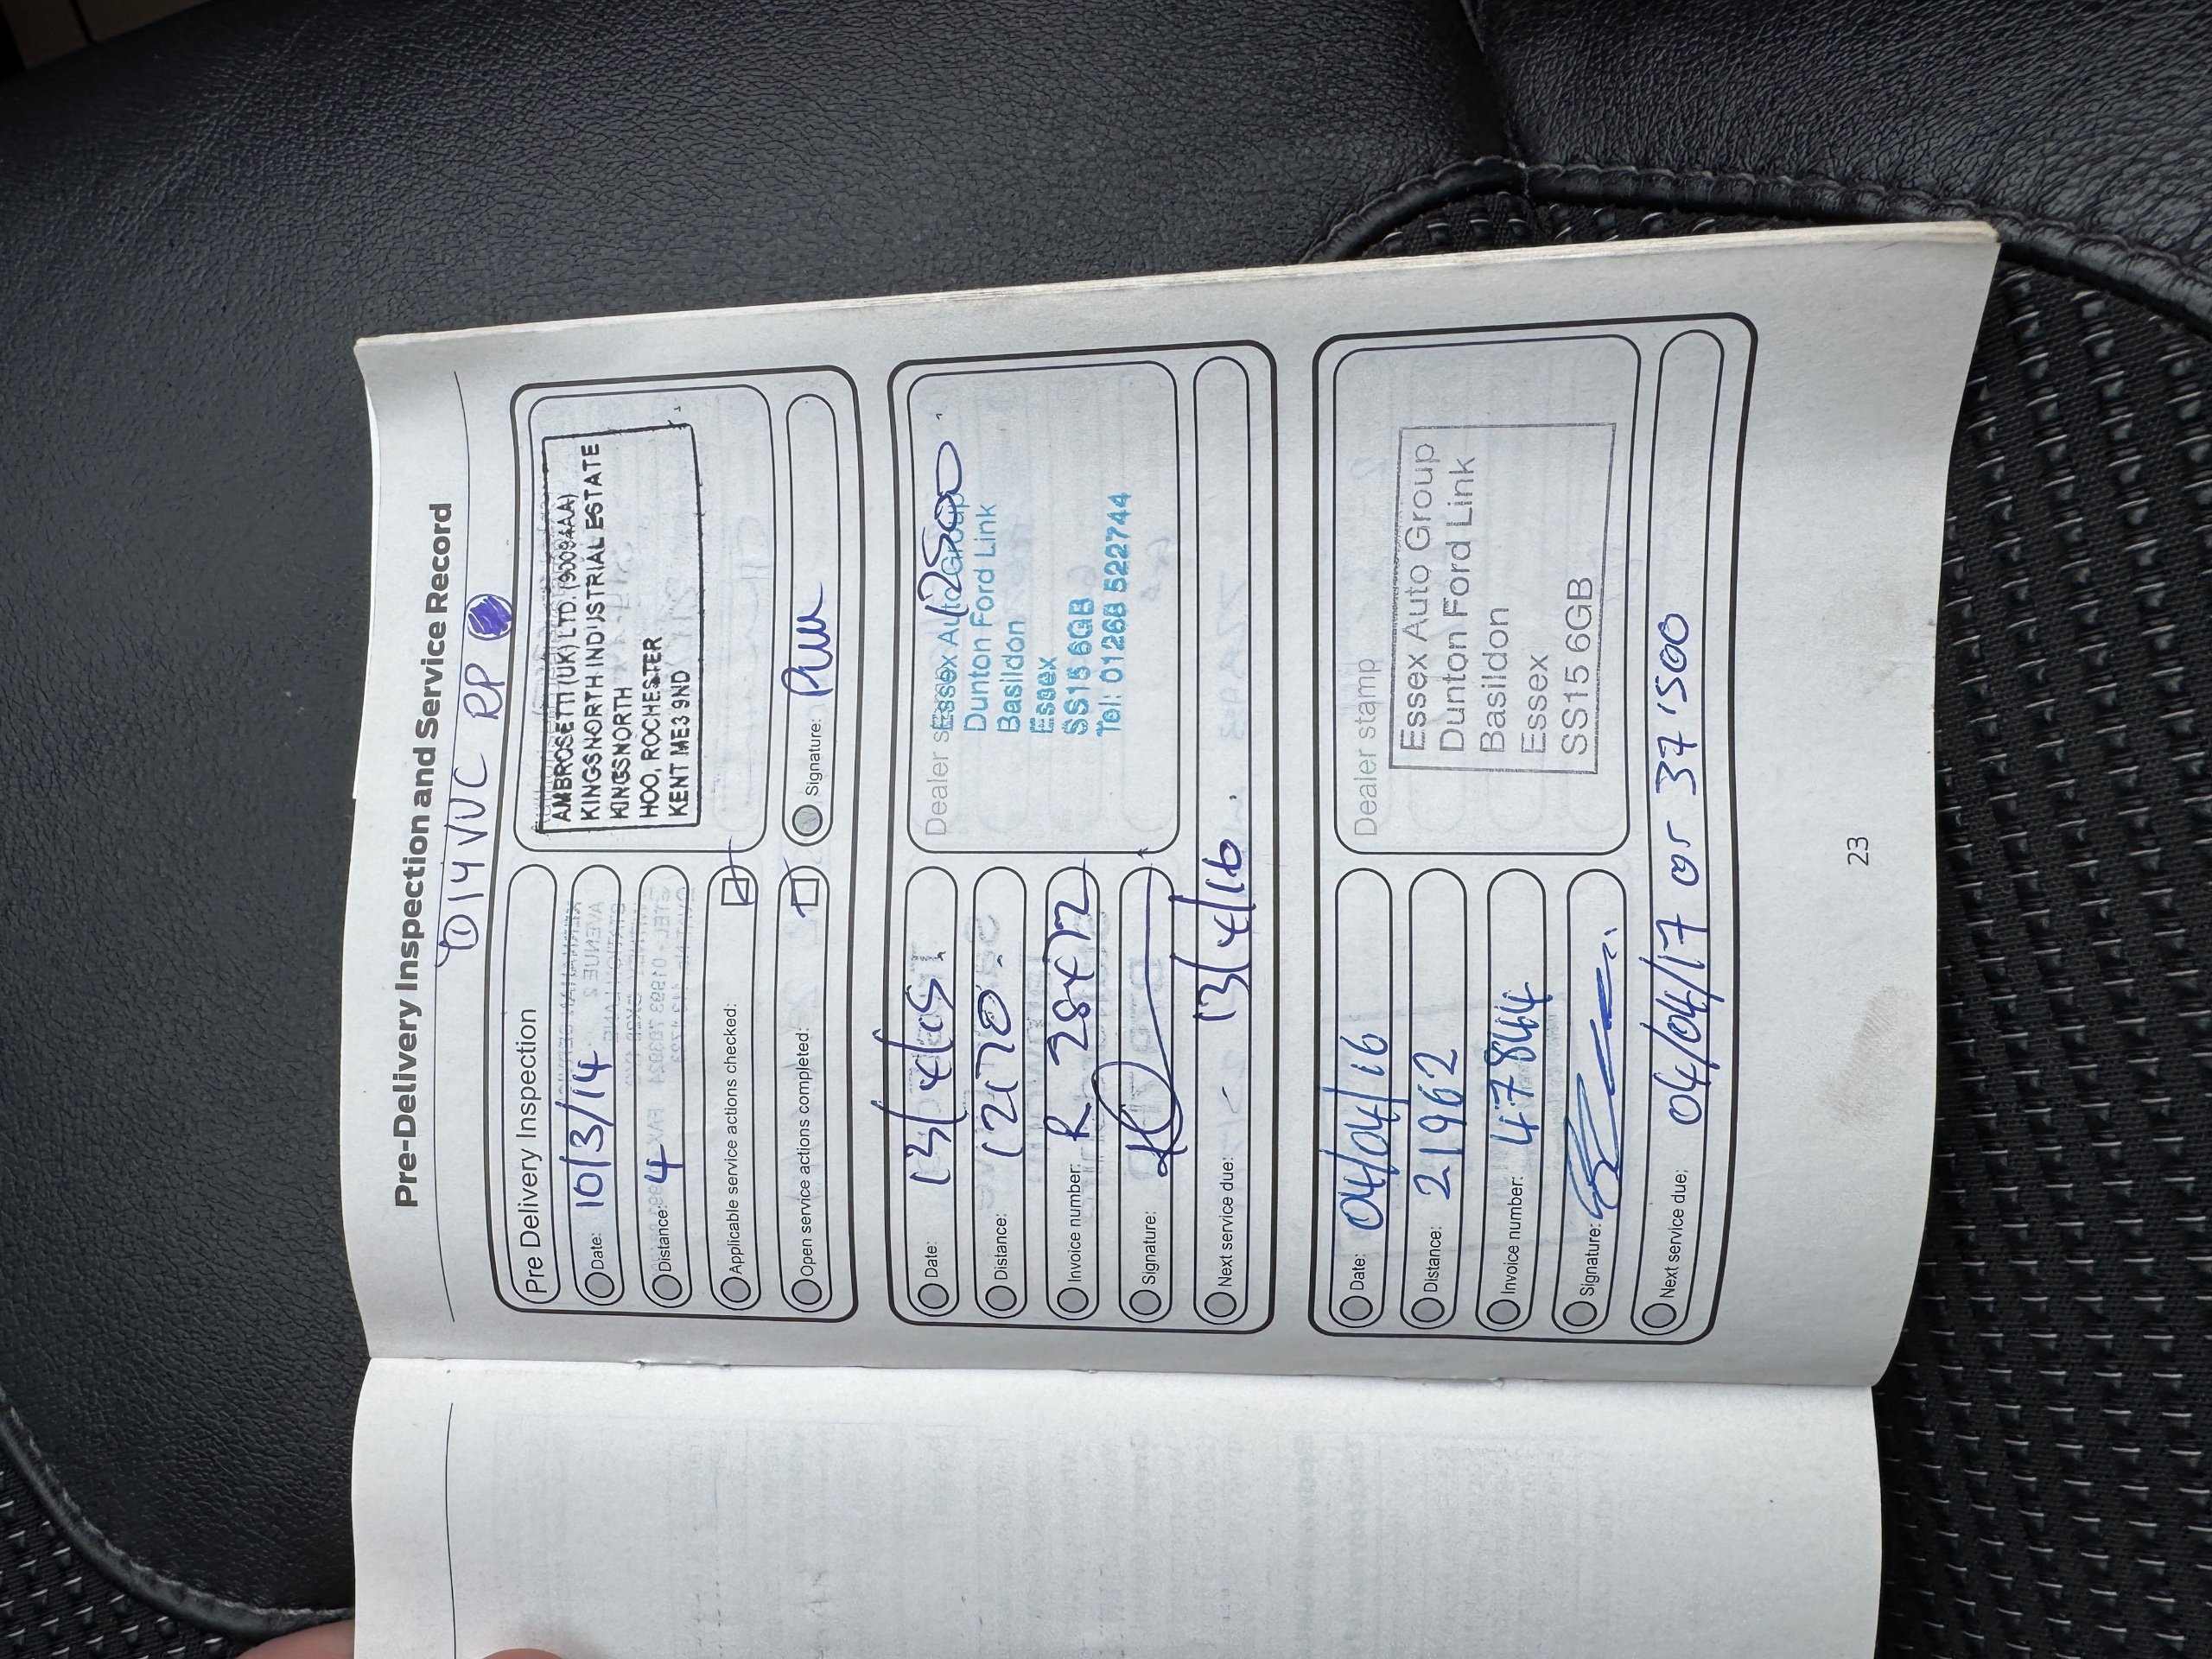 Pre-Delivery Inspection and Service Record
Pre Delivery Inspection
Date: 10/3/14
Distance: 4
Applicable service actions checked:
Open service actions completed:
AMBROSETTI (UK) LTD. (9009AAA)
KINGSNORTH INDUSTRIAL ESTATE
KINGSNORTH
HOO, ROCHESTER
KENT ME3 9ND
Signature:
Date:
Distance:
Invoice number:
Signature:
Next service due: 13/4/16.
Dealer
Essex Auto Group
Dunton Ford Link
Basildon
Essex
SS15 6GB
Tel: 01268 522744
Date: 04/04/16
Distance: 21962
Invoice number: 477844
Signature:
Dealer stamp
Essex Auto Group
Dunton Ford Link
Basildon
Essex
SS15 6GB
Next service due: 04/04/17 or 37'500
23